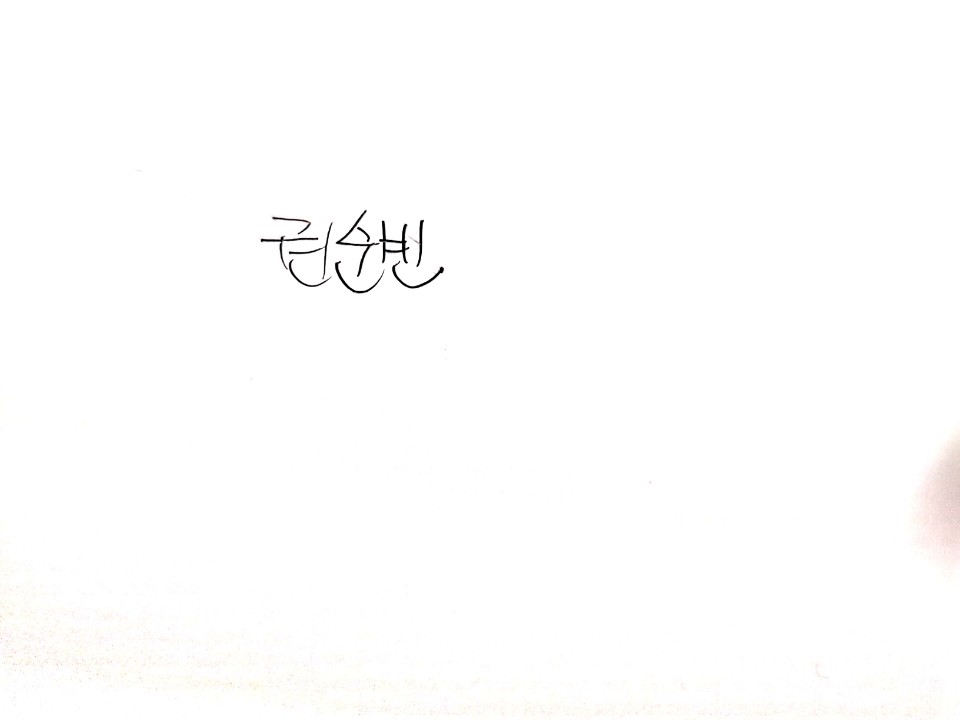 권순빈